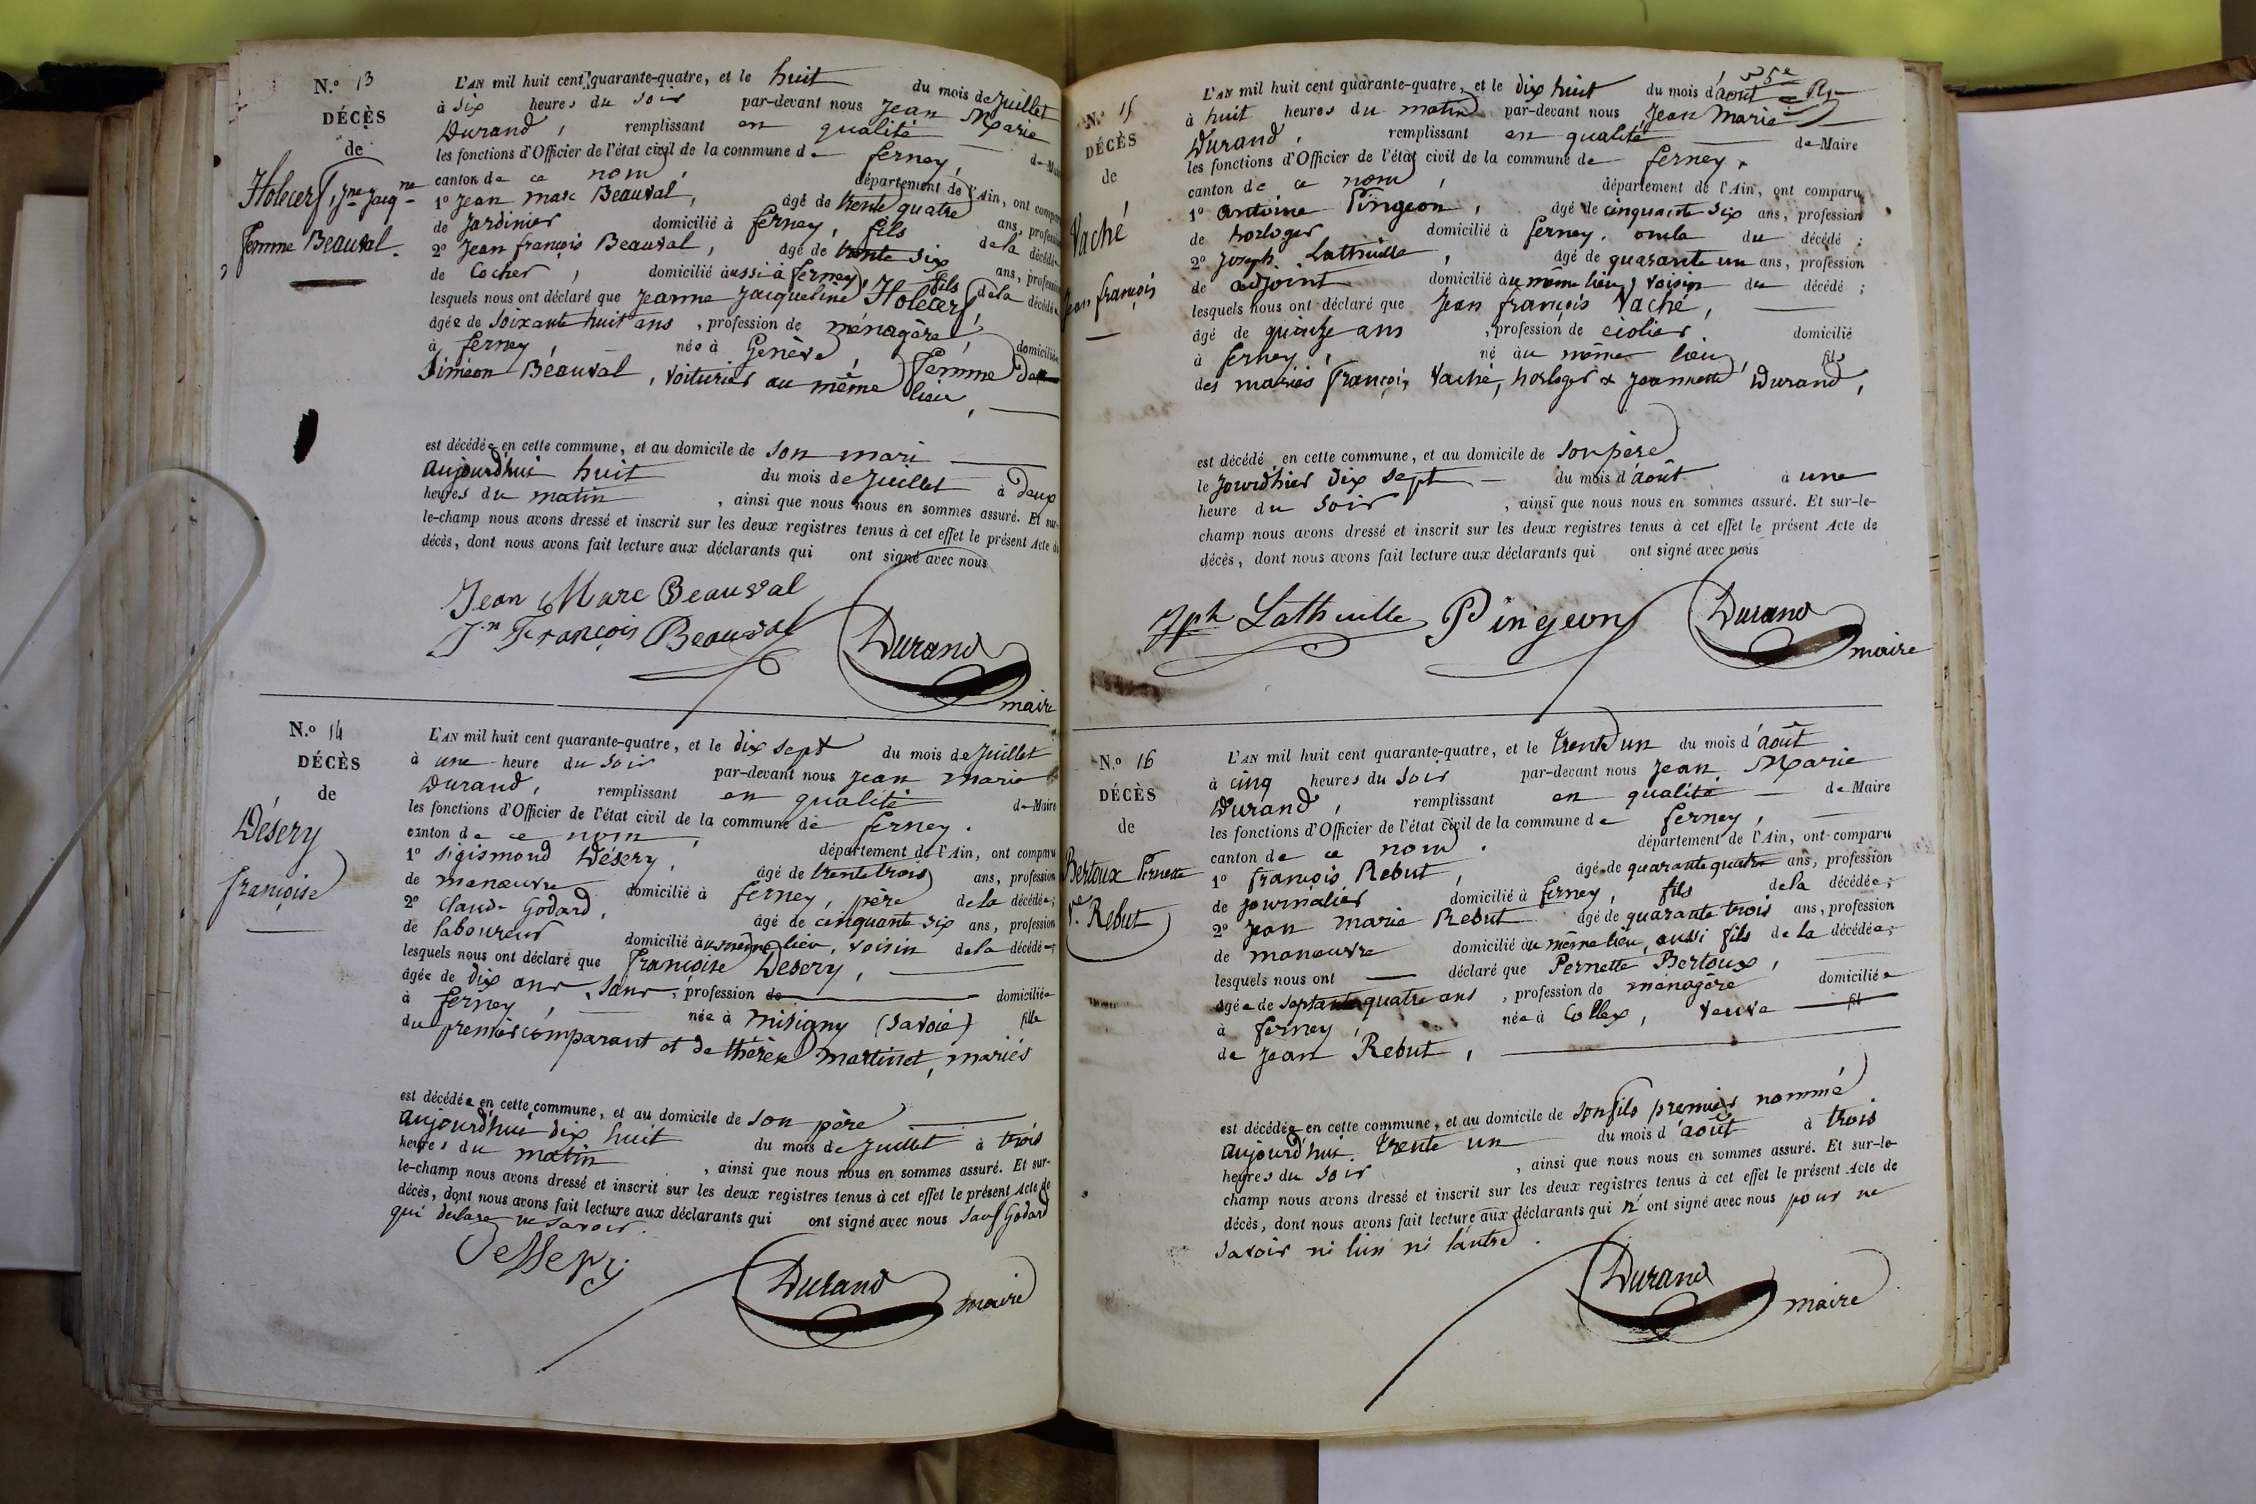 N.o 13
DÉCÈS
de
Jne Jacqne
femme Beauval.
L'AN mil huit cent quarante-quatre, et le huit du mois de Juillet
à six heures du soir par-devant nous Jean Marie
Durand, remplissant en qualité de Maire
les fonctions d'Officier de l'état civil de la commune de ferney,
canton de ce nom, département de l'Ain, ont comparu
1o Jean Marc Beauval, âgé de trente quatre ans, profession
de Jardinier domicilié à ferney, fils de la décédée
2o Jean françois Beauval, âgé de trente six ans, profession
de Cocher, domicilié aussi à ferney, fils de la décédée
lesquels nous ont déclaré que Jeanne Jacqueline
âgée de soixante huit ans, profession de ménagère, domiciliée
à ferney, née à Genève, femme de
Siméon Béauval, voiturier au même lieu,
est décédée en cette commune, et au domicile de son mari
aujourd'hui huit du mois de Juillet à deux
heures du matin, ainsi que nous nous en sommes assuré. Et sur-
le-champ nous avons dressé et inscrit sur les deux registres tenus à cet effet le présent Acte de
décès, dont nous avons fait lecture aux déclarants qui ont signé avec nous
Jean Marc Beauval
Jn François Beauval
Durand
maire
N.o 14
DÉCÈS
de
Désery
françoise
L'AN mil huit cent quarante-quatre, et le dix sept du mois de Juillet
à une heure du soir par-devant nous Jean Marie
Durand, remplissant en qualité de Maire
les fonctions d'Officier de l'état civil de la commune de ferney.
canton de ce nom, département de l'Ain, ont comparu
1o Sigismond Désery, âgé de trente trois ans, profession
de manœuvre domicilié à ferney, père de la décédée;
2o Claude Godard, âgé de cinquante six ans, profession
de laboureur domicilié au même lieu, voisin de la décédée;
lesquels nous ont déclaré que françoise Desery,
âgée de dix ans, sans, profession de domiciliée
à ferney, née à Misigny (Savoie) fille
du premier comparant et de thérèse Martinet, mariés
est décédée en cette commune, et au domicile de son père
aujourd'hui dix huit du mois de Juillet à trois
heures du matin, ainsi que nous nous en sommes assuré. Et sur-
le-champ nous avons dressé et inscrit sur les deux registres tenus à cet effet le présent Acte de
décès, dont nous avons fait lecture aux déclarants qui ont signé avec nous sauf Godard
qui déclare ne savoir.
Durand
maire
N.o 15
DÉCÈS
de
Vaché
Jean françois
L'AN mil huit cent quarante-quatre, et le dix huit du mois d'août
à huit heures du matin par-devant nous Jean Marie
Durand, remplissant en qualité de Maire
les fonctions d'Officier de l'état civil de la commune de ferney,
canton de ce nom, département de l'Ain, ont comparu
1o Antoine Pingeon, âgé de cinquante six ans, profession
de horloger domicilié à ferney. oncle du décédé;
2o Joseph Lathuille, âgé de quarante un ans, profession
de adjoint domicilié au même lieu, voisin du décédé;
lesquels nous ont déclaré que Jean françois Vaché,
âgé de quinze ans, profession de écolier domicilié
à ferney, né au même lieu, fils
des mariés françois Vaché, horloger & Jeannette Durand,
est décédé en cette commune, et au domicile de son père
le jour d'hier dix sept du mois d'août à une
heure du soir, ainsi que nous nous en sommes assuré. Et sur-le-
champ nous avons dressé et inscrit sur les deux registres tenus à cet effet le présent Acte de
décès, dont nous avons fait lecture aux déclarants qui ont signé avec nous
Jph Lathuille Pingeon Durand
maire
N.o 16
DÉCÈS
de
Bertoux Pernette
Ve. Rebut
L'AN mil huit cent quarante-quatre, et le trente un du mois d'août
à cinq heures du soir par-devant nous Jean Marie
Durand, remplissant en qualité de Maire
les fonctions d'Officier de l'état civil de la commune de ferney,
canton de ce nom. département de l'Ain, ont comparu
1o françois Rebut, âgé de quarante quatre ans, profession
de journalier domicilié à ferney, fils de la décédée;
2o Jean marie Rebut âgé de quarante trois ans, profession
de manœuvre domicilié au même lieu, aussi fils de la décédée;
lesquels nous ont déclaré que Pernette Bertoux,
âgée de septante quatre ans, profession de ménagère domiciliée
à ferney, née à Collex, veuve fil
de Jean Rebut,
est décédée en cette commune, et au domicile de son fils premier nommé
aujourd'hui trente un du mois d'août à trois
heures du soir, ainsi que nous nous en sommes assuré. Et sur-le-
champ nous avons dressé et inscrit sur les deux registres tenus à cet effet le présent Acte de
décès, dont nous avons fait lecture aux déclarants qui n'ont signé avec nous pour ne
savoir ni l'un ni l'autre.
Durand
maire